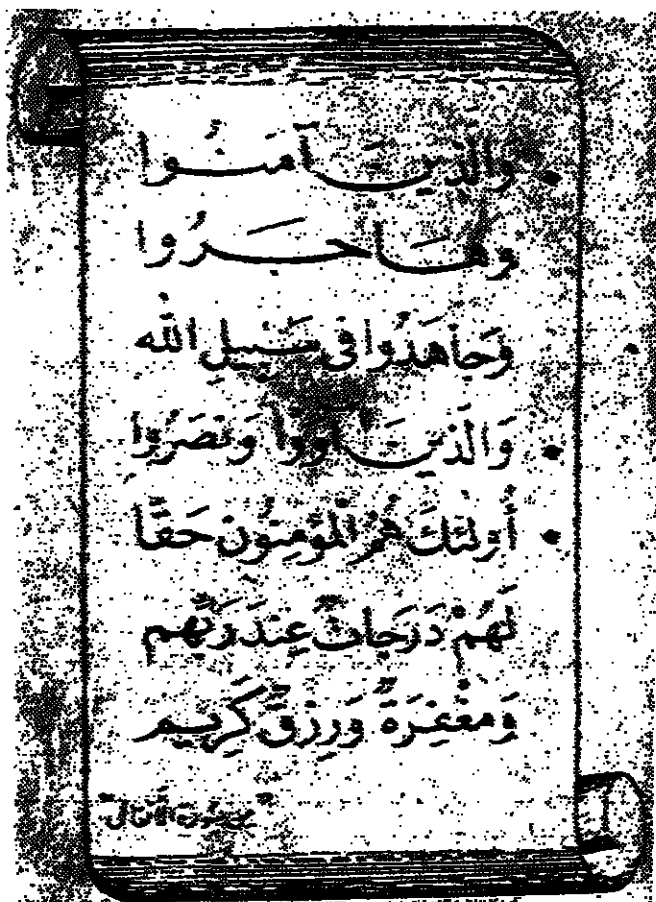 • وَالَّذِينَ آمَنُوا
وَهَاجَرُوا
وَجَاهَدُوا فِي سَبِيلِ اللَّه
• وَالَّذِينَ آوَوْا وَنَصَرُوا
• أُولَئِكَ هُمُ الْمُؤْمِنُونَ حَقًّا
لَهُمْ دَرَجَاتٌ عِنْدَ رَبِّهِم
وَمَغْفِرَةٌ وَرِزْقٌ كَرِيم
"من سورة الأنفال"